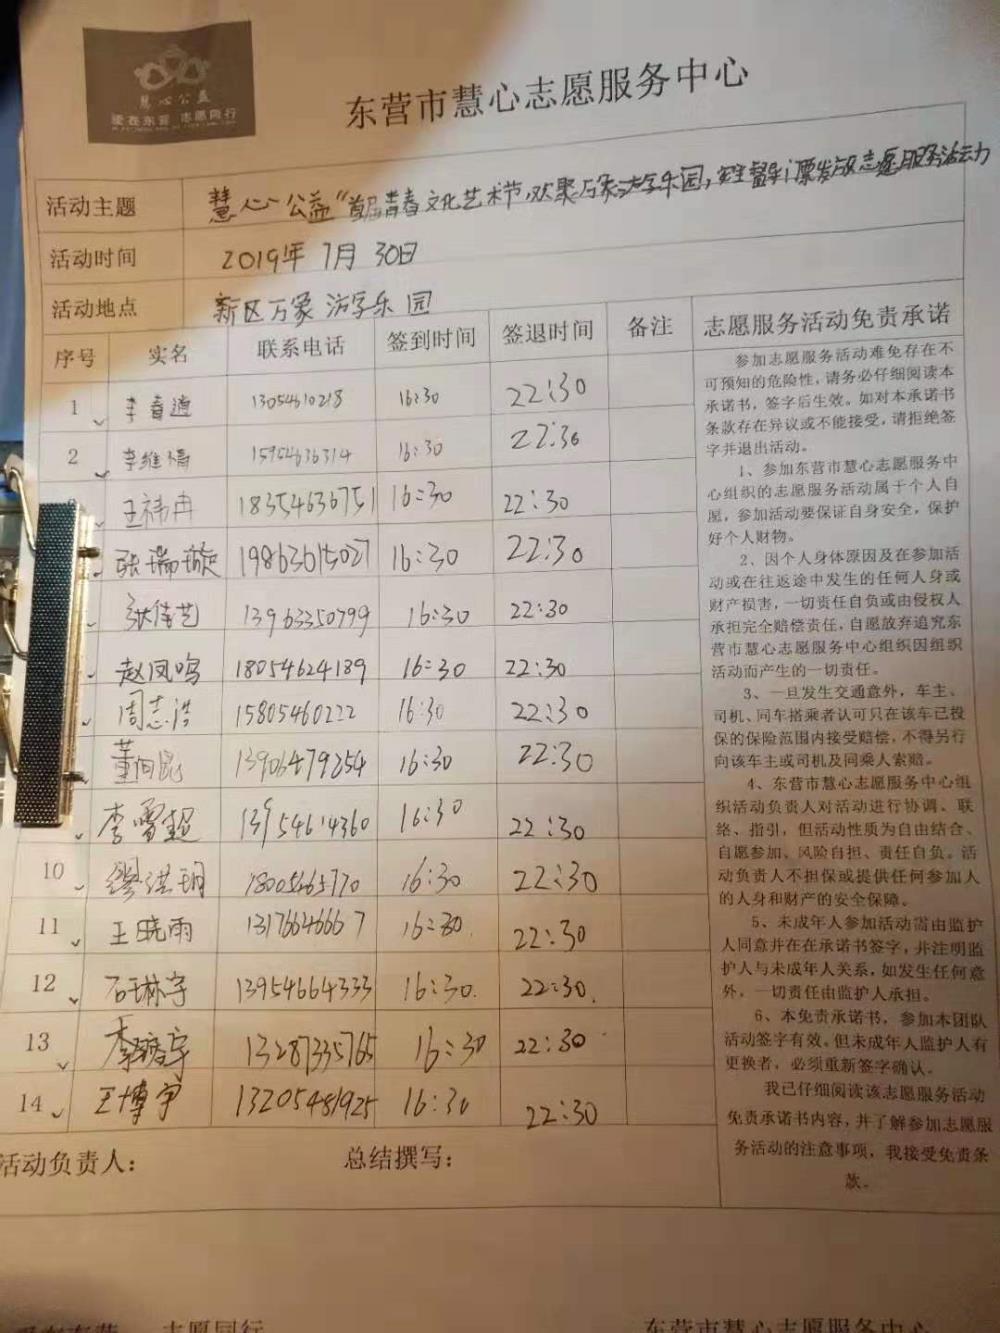 慧心公益
爱在东营 志愿同行
东营市慧心志愿服务中心
活动主题 慧心公益"首届青春文化艺术节,欢聚万象游学乐园,安全督导门票发放志愿服务活动
活动时间 2019年 7月 30日
活动地点 新区万象 游学乐园
序号 实名 联系电话 签到时间 签退时间 备注
1 李春迪 13054610218 16:30 22:30
2 李维倩 15954636314 16:30 22:30
王祎冉 18354636751 16:30 22:30
张瑞璇 19863015027 16:30 22:30
张倩艺 13963350799 16:30 22:30
赵凤鸣 18054624189 16:30 22:30
周志浩 15805460222 16:30 22:30
董向昆 13906479254 16:30 22:30
李雪超 13954614360 16:30 22:30
10 缪淇玥 16:30 22:30
11 王晓雨 13176646667 16:30 22:30
12 石琳宇 13954664333 16:30 22:30
13 宇 13287335765 16:30 22:30
14 王博宇 13205481925 16:30 22:30
活动负责人: 总结撰写:
志愿服务活动免责承诺
参加志愿服务活动难免存在不
可预知的危险性,请务必仔细阅读本
承诺书,签字后生效。如对本承诺书
条款存在异议或不能接受,请拒绝签
字并退出活动。
1、参加东营市慧心志愿服务中
心组织的志愿服务活动属于个人自
愿,参加活动要保证自身安全,保护
好个人财物。
2、因个人身体原因及在参加活
动或在往返途中发生的任何人身或
财产损害,一切责任自负或由侵权人
承担完全赔偿责任,自愿放弃追究东
营市慧心志愿服务中心组织因组织
活动而产生的一切责任。
3、一旦发生交通意外,车主、
司机、同车搭乘者认可只在该车已投
保的保险范围内接受赔偿,不得另行
向该车主或司机及同乘人索赔。
4、东营市慧心志愿服务中心组
织活动负责人对活动进行协调、联
络、指引,但活动性质为自由结合、
自愿参加、风险自担、责任自负。活
动负责人不担保或提供任何参加人
的人身和财产的安全保障。
5、未成年人参加活动需由监护
人同意并在在承诺书签字,并注明监
护人与未成年人关系,如发生任何意
外,一切责任由监护人承担。
6、本免责承诺书,参加本团队
活动签字有效。但未成年人监护人有
更换者,必须重新签字确认。
我已仔细阅读该志愿服务活动
免责承诺书内容,并了解参加志愿服
务活动的注意事项,我接受免责条
款。
志愿同行
东营市慧心志愿服务中心